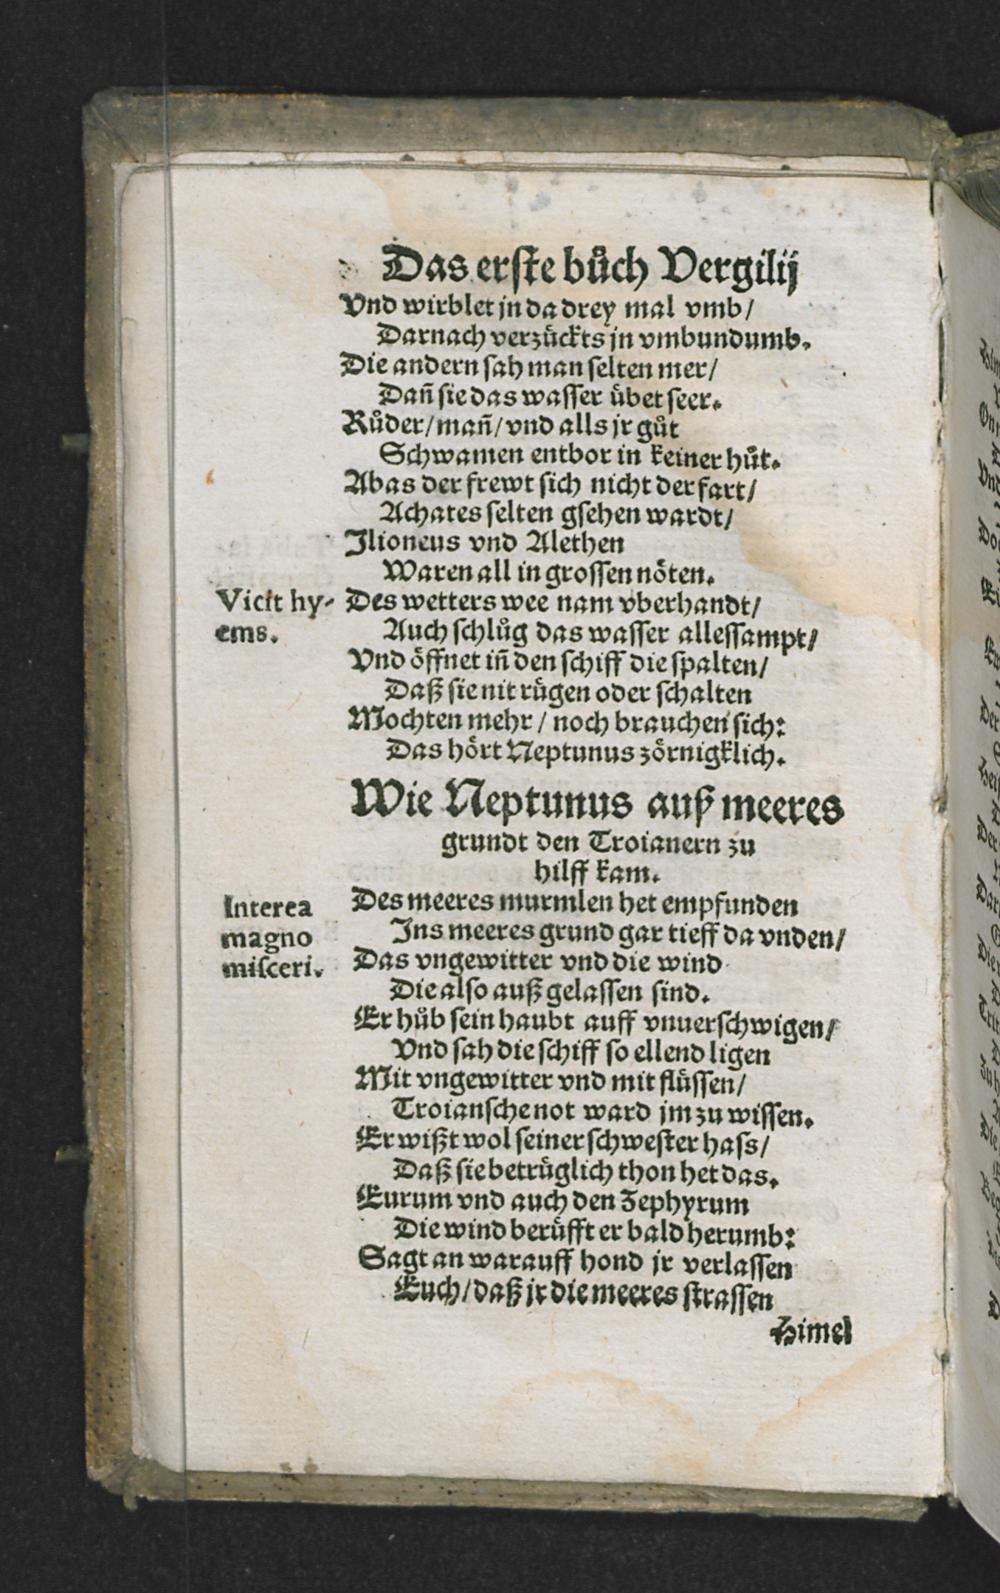 Das erste bůch Vergilij
Vnd wirblet jn da drey mal vmb/
Darnach verzückts jn vmbundumb.
Die andern sah man selten mer/
Dañ sie das wasser übet seer.
Růder/mañ/vnd alls jr gůt
Schwamen entbor in keiner hůt.
Abas der frewt sich nicht der fart/
Achates selten gsehen wardt/
Jlioneus vnd Alethen
Waren all in grossen nöten.
Vicit hy-
ems.
Des wetters wee nam vberhandt/
Auch schlůg das wasser allessampt/
Vnd öffnet iñ den schiff die spalten/
Daß sie nit rügen oder schalten
Mochten mehr / noch brauchen sich:
Das hört Neptunus zörnigklich.
Wie Neptunus auß meeres
grundt den Troianern zu
hilff kam.
Interea
magno
misceri.
Des meeres murmlen het empfunden
Jns meeres grund gar tieff da vnden/
Das vngewitter vnd die wind
Die also auß gelassen sind.
Er hůb sein haubt auff vnuerschwigen/
Vnd sah die schiff so ellend ligen
Mit vngewitter vnd mit flüssen/
Troiansche not ward jm zu wissen.
Er wißt wol seiner schwester hass/
Daß sie betrüglich thon het das.
Eurum vnd auch den Zephyrum
Die wind berüfft er bald herumb:
Sagt an warauff hond jr verlassen
Euch/daß jr die meeres strassen
Himel